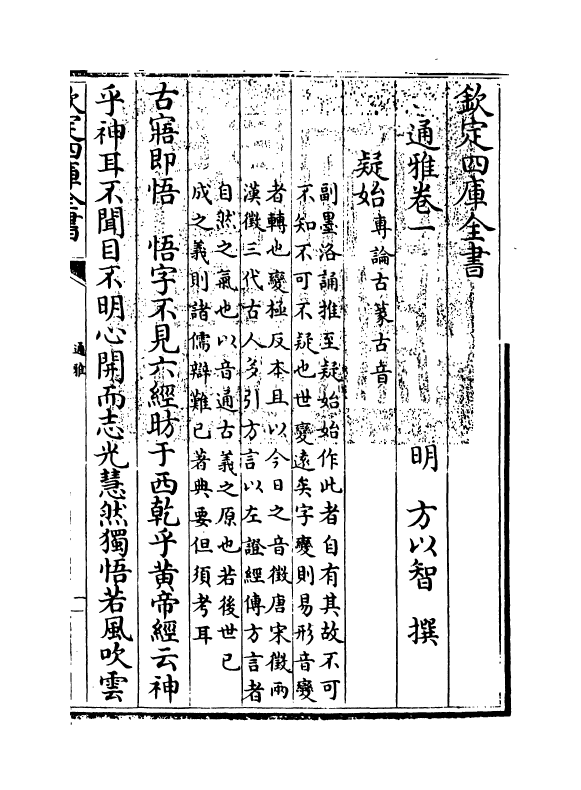 欽定四庫全書
通雅卷一
明 方以智 撰
疑始 專論古篆古音
副墨洛誦推至疑始始作此者自有其故不可
不知不可不疑也世變遠矣字變則易形音變
者轉也變極反本且以今日之音徵唐宋徵兩
漢徵三代古人多引方言以左證經傳方言者
自然之氣也以音通古義之原也若後世已
成之義則諸儒辯難已著典要但須考耳
古寤即悟 悟字不見六經昉于西乾乎黄帝經云神
乎神耳不聞目不明心開而志光慧然獨悟若風吹雲
欽定四庫全書
通雅
一